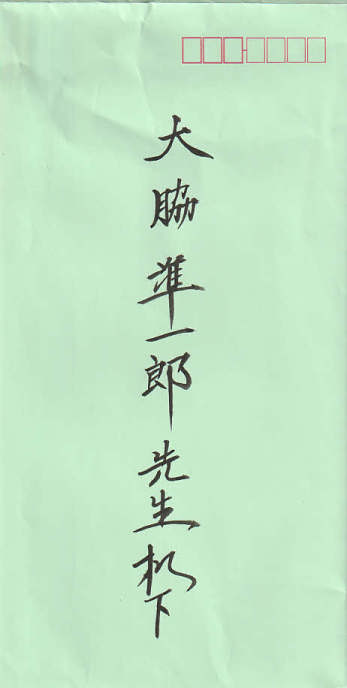 大脇準一郎先生机下